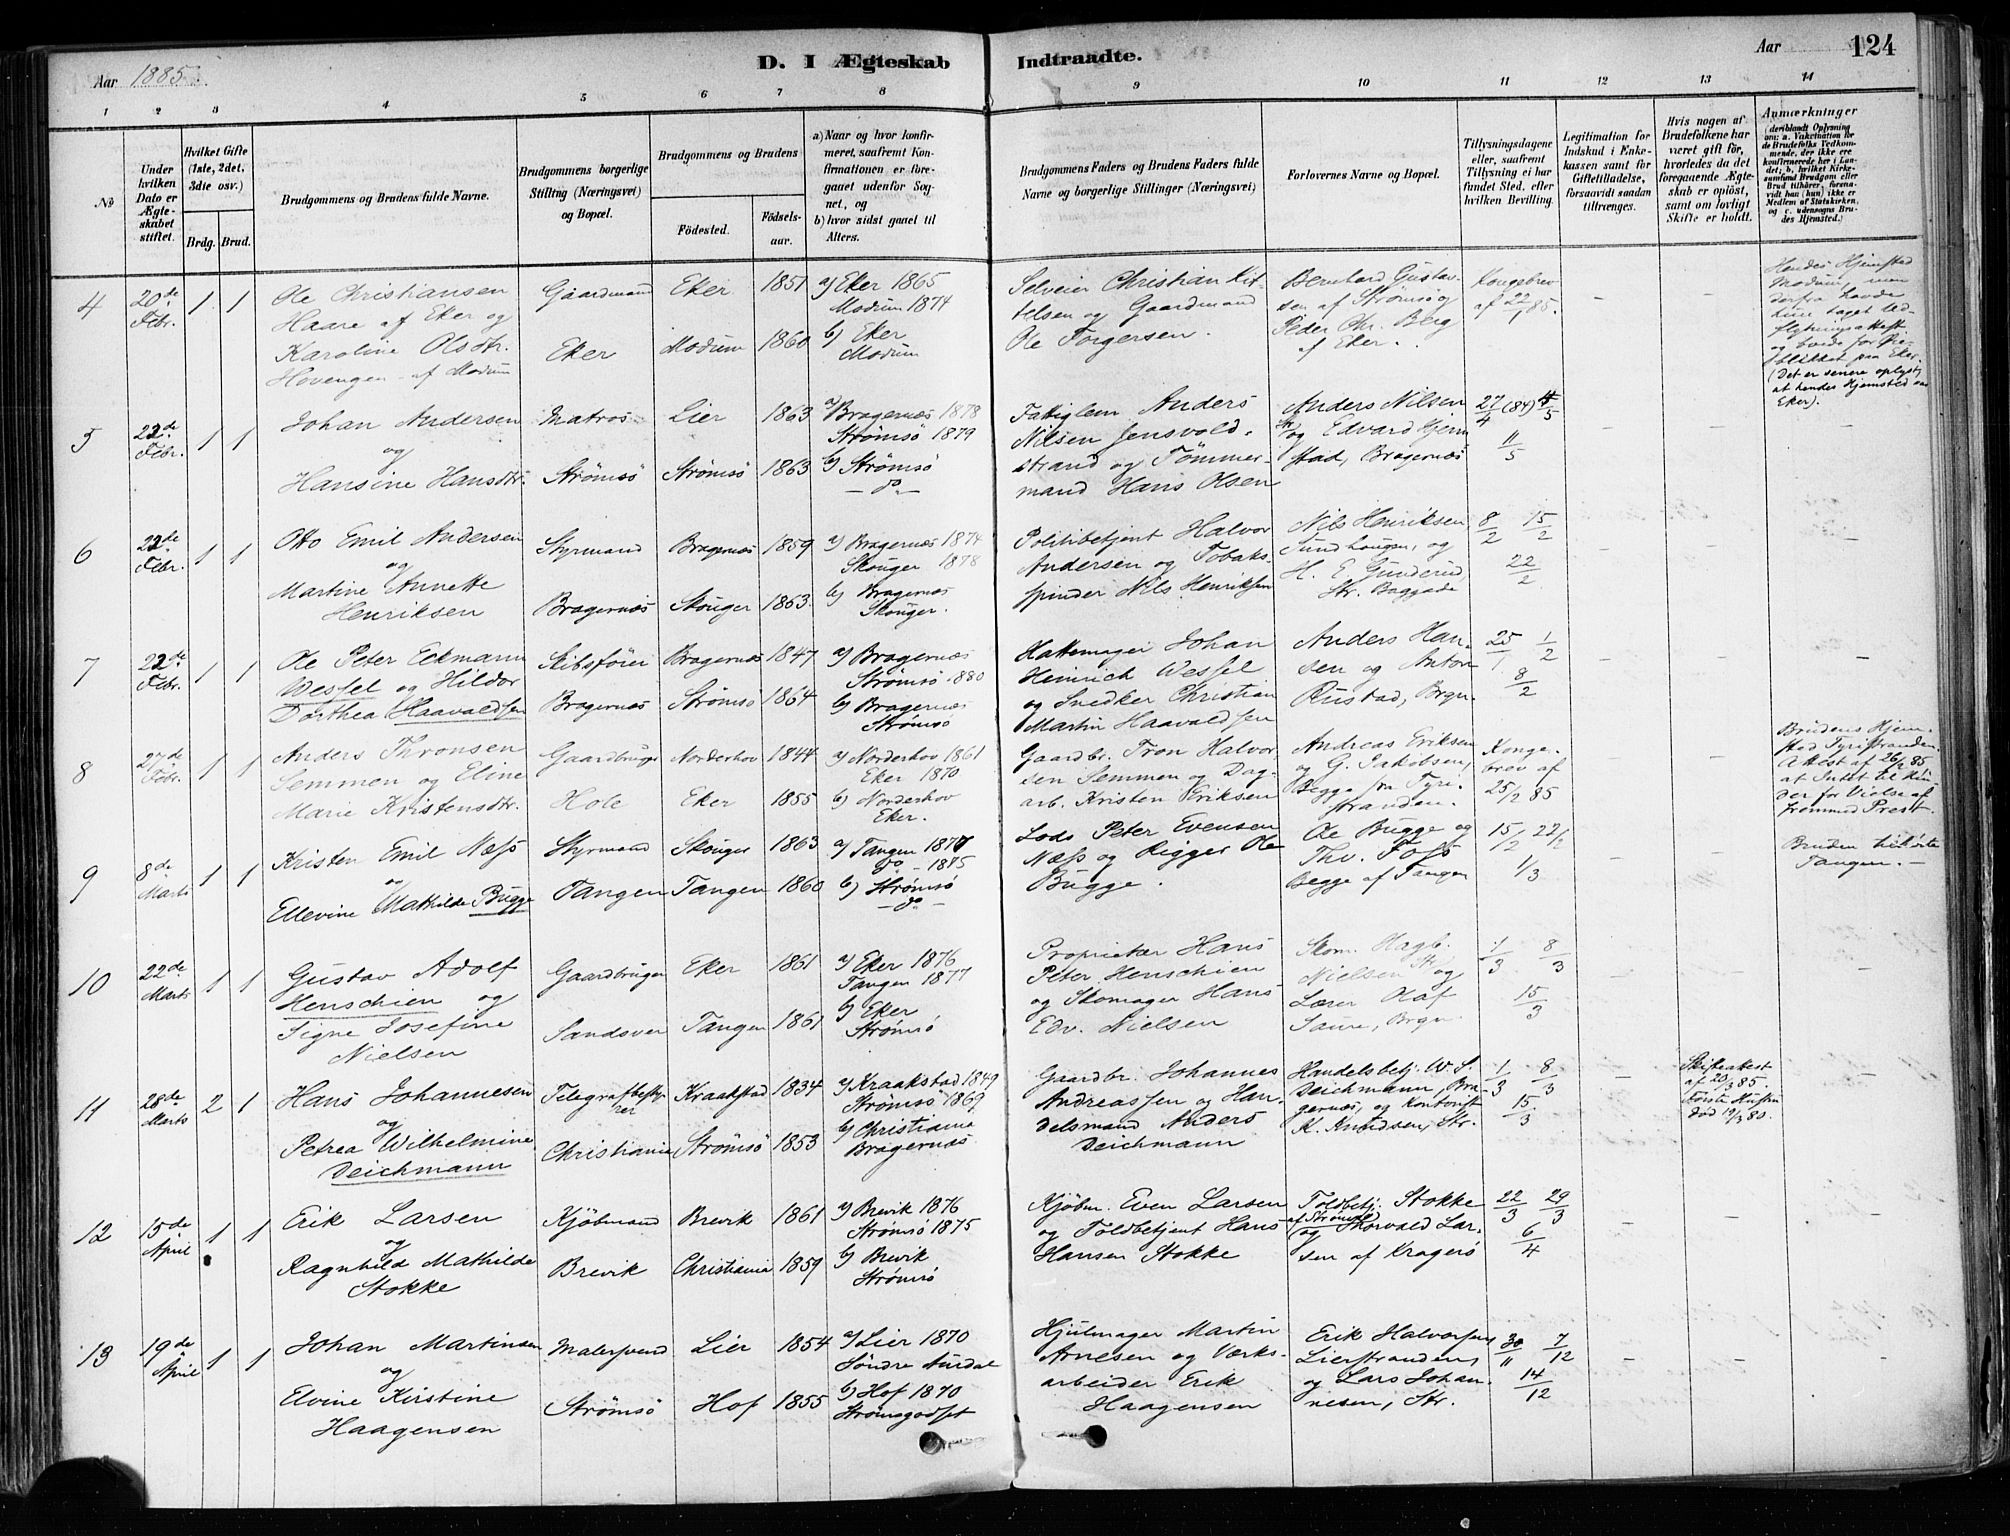 Aar 1885.
D. I Ægteskab Indtraadte.
Aar 124
1 2 3 4 5 6 7 8 9 10 11 12 13 14
No
Under hvilken Dato er Ægteskabet stiftet.
Hvilket Gifte (1ste, 2det, 3die osv.)
Brdg. Brud.
Brudgommens og Brudens fulde Navne.
Brudgommens borgerlige Stilling (Næringsvei) og Bopæl.
Brudgommens og Brudens
Födested. Födselsaar.
a) Naar og hvor konfirmeret, saafremt Konfirmationen er foregaaet udenfor Sognet, og
b) hvor sidst gaaet til Alters.
Brudgommens Faders og Brudens Faders fulde Navne og borgerlige Stillinger (Næringsvei)
Forlovernes Navne og Bopæl.
Tillysningsdagene eller, saafremt Tillysning ei har fundet Sted, efter hvilken Bevilling.
Legitimation for Indskud i Enkekassen samt for Giftetilladelse, forsaavidt saadan tiltrænges.
Hvis nogen af Brudefolkene har været gift för, hvorledes da det foregaaende Ægteskab er oplöst, samt om lovligt Skifte er holdt.
Anmærkninger
(deriblandt Oplysning om: a. Vakcination for de Brudefolks Vedkommende, der ikke ere konfirmerede her i Landet; b. hvilket Kirkesamfund Brudgom eller Brud tilhörer, forsaavidt han (hun) ikke er Medlem af Statskirken, og c. udensogns Brudes Hjemsted.)
4 20de Febr. 1 1
Ole Christiansen
Haare af Eker og
Karoline Olsdtr.
Hovengen - af Modum
Gaardmand
Eker
Eker 1851
Modum 1860
a) Eker 1865
Modum 1874
b) Eker
Modum
Selveier Christian Kit-
telsen og Gaardmand
Ole Torgersen.
Bernhard Gustav-
sen af Strömsö og
Peder Chr. Berg
af Eker.
Kongebrev
af 22/1 85.
Hendes Hjemsted
Modum, men
derfra havde
hun taget Ud-
flytningsattest
og boede for Øie-
blikket paa Eker.
(Det er senere oplyst,
at hendes Hjemsted var
Eker).
5 22de Febr. 1 1
Johan Andersen
og
Hansine Hansdtr.
Matros
Strömsö
Lier 1863
Strömsö 1863
a) Bragernæs 1878
Strömsö 1879
b) Strömsö
- do -
Fattiglem Anders
Nilsen Jensvold-
strand og Tömmer-
mand Hans Olsen
Anders Nilsen
Str. og Edvard Hjerm
stad, Bragernæs
27/4 (84) 4/5
11/5
6 22de Febr. 1 1
Otto Emil Andersen
og
Martine Annette
Henriksen
Styrmand
Bragernæs
Bragernæs 1859
Skouger 1863.
a) Bragernæs 1874
Skouger 1878
b) Bragernæs
Skouger.
Politibetjent Halvor
Andersen og Tobaks-
spinder Nils Henriksen
Nils Henriksen
Sundhougen, og
H. E Gunderud,
Str. Baggade
8/2 15/2
22/2
7 22de Febr. 1 1
Ole Peter Eckmann
Wessel og Hildor
Dorthea Haavaldsen
Skibsförer
Bragernæs
Bragernæs 1847
Strömsö 1864
a) Bragernæs
Strömsö 1880
b) Bragernæs
Strömsö
Hattemager Johan
Heinrich Wessel
og Snedker Christian
Martin Haavaldsen
Anders Han-
sen og Anton
Rustad, Brgn.
25/1 1/2
8/2
8 27de Febr. 1 1
Anders Thronsen
Semmen og Eline
Marie Kristensdtr.
Gaardbruger
Hole
Norderhov 1844
Eker 1855
a) Norderhov 1861
Eker 1870
b) Norderhov
Eker.
Gaardbr. Tron Halvor
sen Semmen og Dag-
arb. Kristen Eriksen
Andreas Eriksen
og G. Jakobsen,
Begge fra Tyri-
stranden.
Konge-
brev af
25/2 85
Brudens Hjem-
sted Tyristranden.
Attest af 26/2 85
at Intet til Hin-
der for Vielse af
fremmed Prest.
9 8de Marts 1 1
Kristen Emil Næss
og
Ellevine Mathilde Bugge
Styrmand
Tangen
Skouger 1863
Tangen 1860
a) Tangen 1877
do - 1875
b) Strömsö
- do -
Lods Peter Evensen
Næss og Rigger Ole
Bugge.
Ole Bugge og
Thv. Foss
Begge af Tangen
15/2 22/2
1/3
Bruden tilhörte
Tangen. -
10 22de Marts 1 1
Gustav Adolf
Henschien og
Signe Josefine
Nielsen
Gaardbruger
Sandsver
Eker 1861
Tangen 1861
a) Eker 1876
Tangen 1877
b) Eker
Strömsö
Proprietær Hans
Peter Henschien
og Skomager Hans
Edv. Nielsen
Skom. Hagb.
Nielsen Str. og
Lærer Olaf
Saure, Brgn.
1/3 8/3
15/3
11 28de Marts 2 1
Hans Johannesen
og
Petrea Wilhelmine
Deichmann
Telegrafbesty-
rer
Christiania
Kraakstad 1834
Strömsö 1853
a) Kraakstad 1849
Strömsö 1869
b) Christiania
Bragernæs
Gaardbr. Johannes
Andreassen og Han-
delsmand Anders
Deichmann
Handelsbetj. W. S.
Deichmann, Bra
gernæs, og Kontorist
K. Knudsen, Str.
1/3 8/3
15/3
Skifteattest
af 20/3 85.
Förste Hustru
död 19/3 80.
12 15de April 1 1
Erik Larsen
og
Ragnhild Mathilde
Stokke
Kjöbmand
Brevik
Brevik 1861
Christiania 1859
a) Brevik 1876
Strömsö 1875
b) Brevik
Strömsö
Kjöbm. Even Larsen
og Toldbetjent Hans
Hansen Stokke
Toldbetj. Stokke
(af Strömsö)
og Thorvald Lar-
sen af Kragerö
22/3 29/3
6/4
13 19de April 1 1
Johan Martinsen
og
Elvine Kirstine
Haagensen
Malersvend
Strömsö
Lier 1854
Hof 1855
a) Lier 1870
Söndre Aurdal
b) Hof 1870
Strömsgodset
Hjulmager Martin
Arnesen og Værks-
arbeider Erik
Haagensen
Erik Halvorsen,
Lierstranden,
og Lars Johan-
nesen, Str.
30/11 7/12
14/12